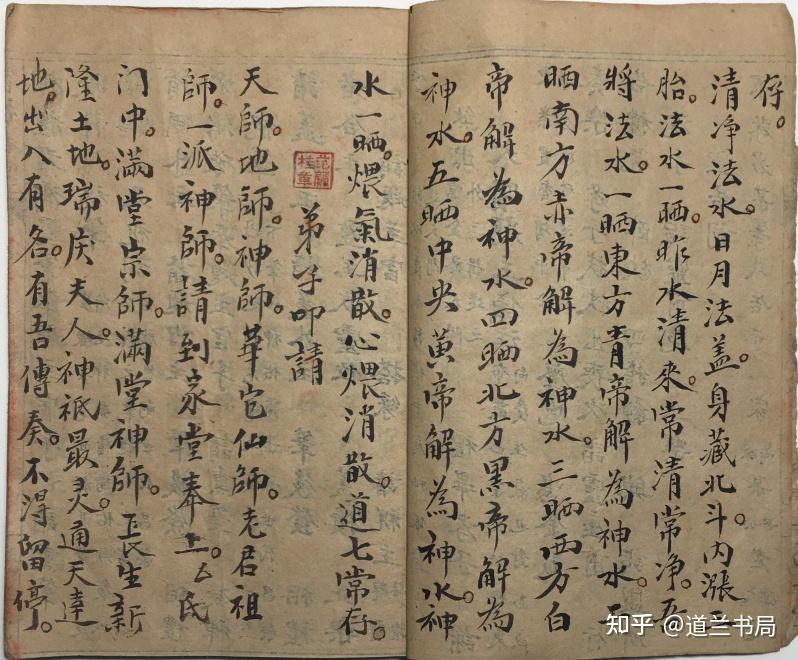 存。
清净法水。日月法盖。身藏北斗内涨三
胎。法水一晒。昨水清来。常清常净。吾
將法水。一晒東方青帝解為神水。二
晒南方赤帝解為神水。三晒西方白
帝解為神水。四晒北方黑帝解為
神水。五晒中央黄帝解為神水。神
水一晒。煨氣消散。心煨消散。道七常存。
弟子叩請
天師。地師。神師。華它仙師。老君祖
師。一派神師。請到家堂奉上。厶氏
门中。满堂宗師。满堂神師。長生新
隆土地。瑞庆夫人。神祗最灵。通天達
地。出入有各。有吾傳奏。不淂留停。
知乎 @道兰书局